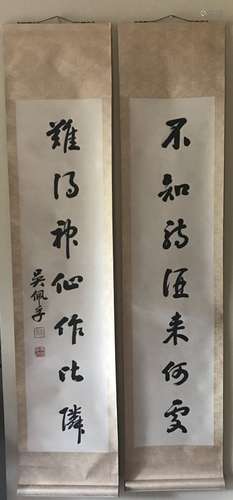 不知詩酒来何處
難得神仙作比隣
吳佩孚